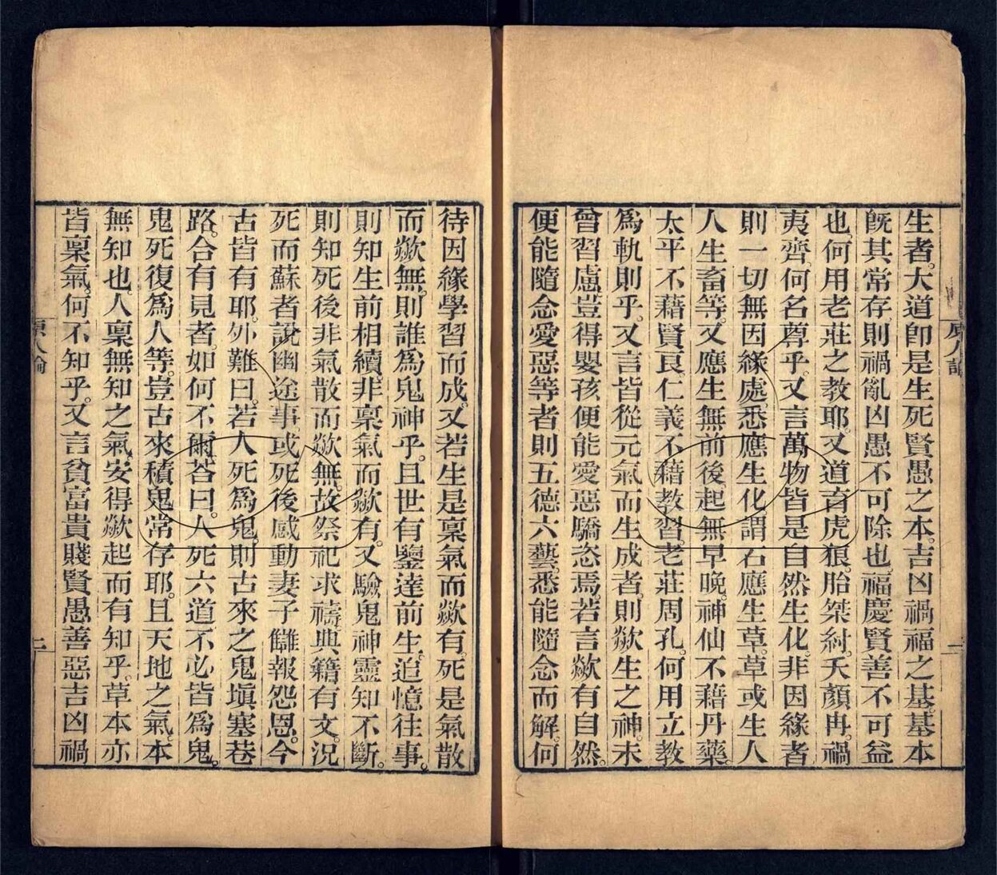 生者。大道卽是生死賢愚之本。吉凶禍福之基。基本
旣其常存則禍亂凶愚不可除也。福慶賢善不可益
也。何用老莊之教耶。又道育虎狼胎桀紂。夭顏冉。禍
夷齊。何名尊乎。又言萬物皆是自然生化非因緣者
則一切無因緣處悉應生化謂石應生草。草或生人
人生畜等。又應生無前後起無早晚。神仙不藉丹藥。
太平不藉賢良仁義不藉教習老莊周孔。何用立教
爲軌則乎。又言皆從元氣而生成者。則歘生之神。未
曾習慮豈得嬰孩便能愛惡驕恣焉若言歘有自然。
便能隨念愛惡等者則五德六藝悉能隨念而解。何
待因緣學習而成。又若生是稟氣而歘有。死是氣散
而歘無。則誰爲鬼神乎。且世有鑒達前生。追憶往事。
則知生前相續非稟氣而歘有。又驗鬼神靈知不斷。
則知死後非氣散而歘無。故祭祀求禱典籍有文。況
死而蘇者說幽途事。或死後感動妻子讎報怨恩。今
古皆有耶。外難曰。若人死爲鬼。則古來之鬼塡塞巷
路。合有見者。如何不爾荅曰。人死六道不必皆爲鬼。
鬼死復爲人等。豈古來積鬼常存耶。且天地之氣本
無知也。人稟無知之氣安得歘起而有知乎。草木亦
皆稟氣。何不知乎。又言貧富貴賤賢愚善惡吉凶禍
原人論
二